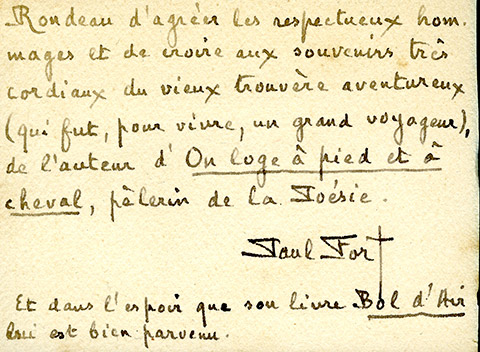 Rondeau d'agréer les respectueux hom-
mages et de croire aux souvenirs très
cordiaux du vieux trouvère aventureux
(qui fut, pour vivre, un grand voyageur),
de l'auteur d'On loge à pied et à
cheval, pèlerin de la Poésie.
Paul Fort
Et dans l'espoir que son livre Bol d'Air
lui est bien parvenu.